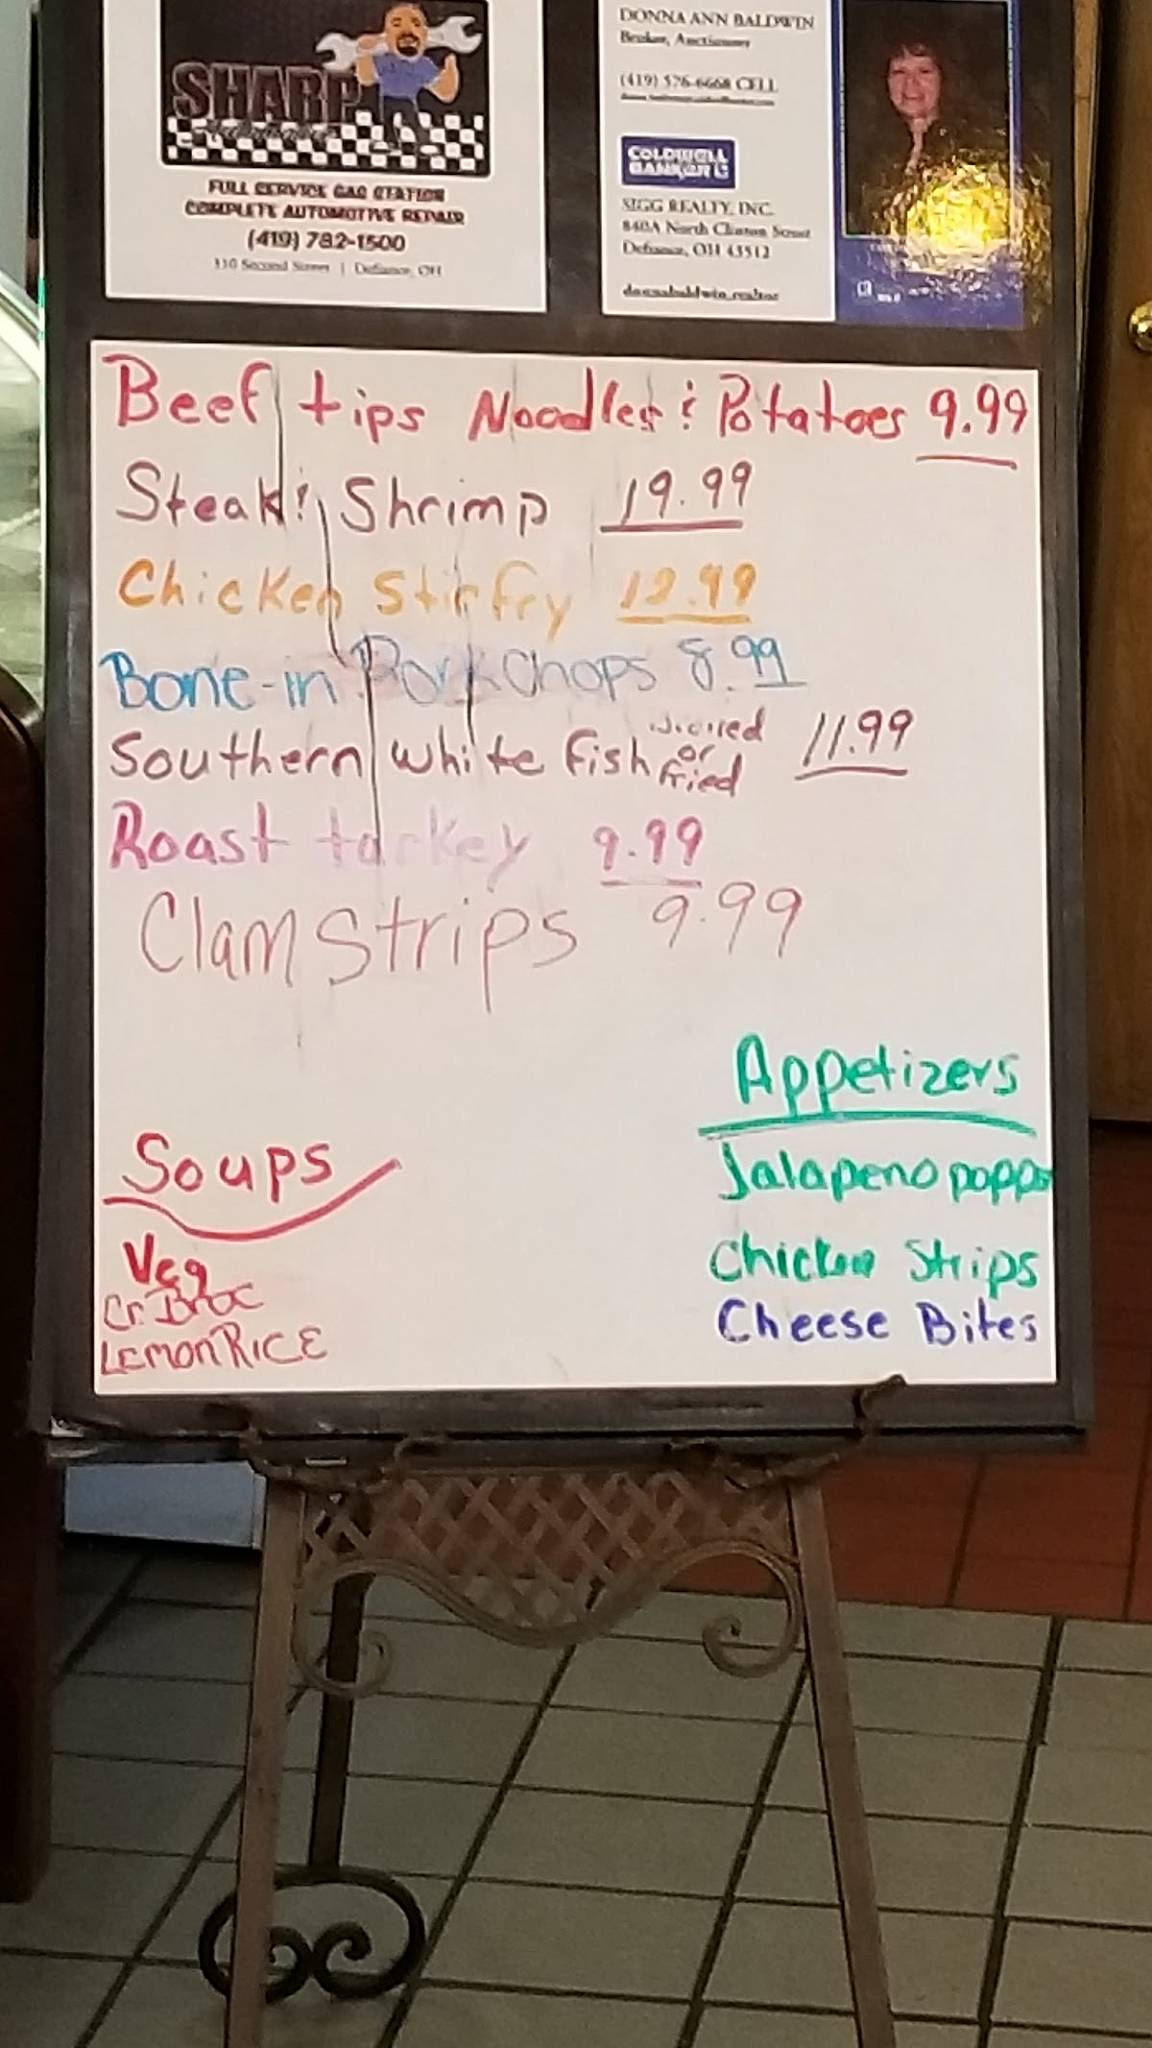 SHARP
FULL SERVICE GAS STATION
COMPLETE AUTOMOTIVE REPAIR
(419) 782-1500
Second Street | Defiance, OH
DONNA ANN BALDWIN
Broker, Auctioneer
(419) 576-6668 CELL
COLDWELL
BANKER
SIGG REALTY, INC.
840A North Clinton Street
Defiance, OH 43512
donnabaldwin.realtor
Beef tips Noodles & Potatoes 9.99
Steak & Shrimp 19.99
Chicken Stir fry 12.99
Bone-in Pork Chops 8.99
Southern white fish or fried 11.99
Roast turkey 9.99
Clam Strips 9.99
Appetizers
Jalapeno popp
Chicken Strips
Cheese Bites
Soups
Veg
Cr. Broc
LEMON RICE